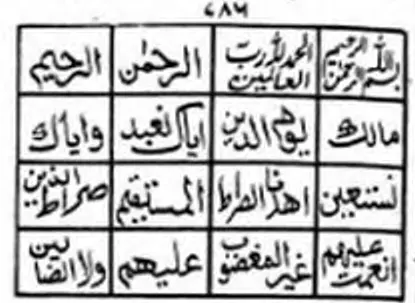 ٧٨٦
بسم الله الرحمن الرحيم الحمد لله رب العالمين الرحمٰن الرحيم
مالك يوم الدين اياك نعبد واياك
نستعين اهدنا الصراط المستقيم صراط الذين
انعمت عليهم غير المغضوب عليهم ولا الضالين